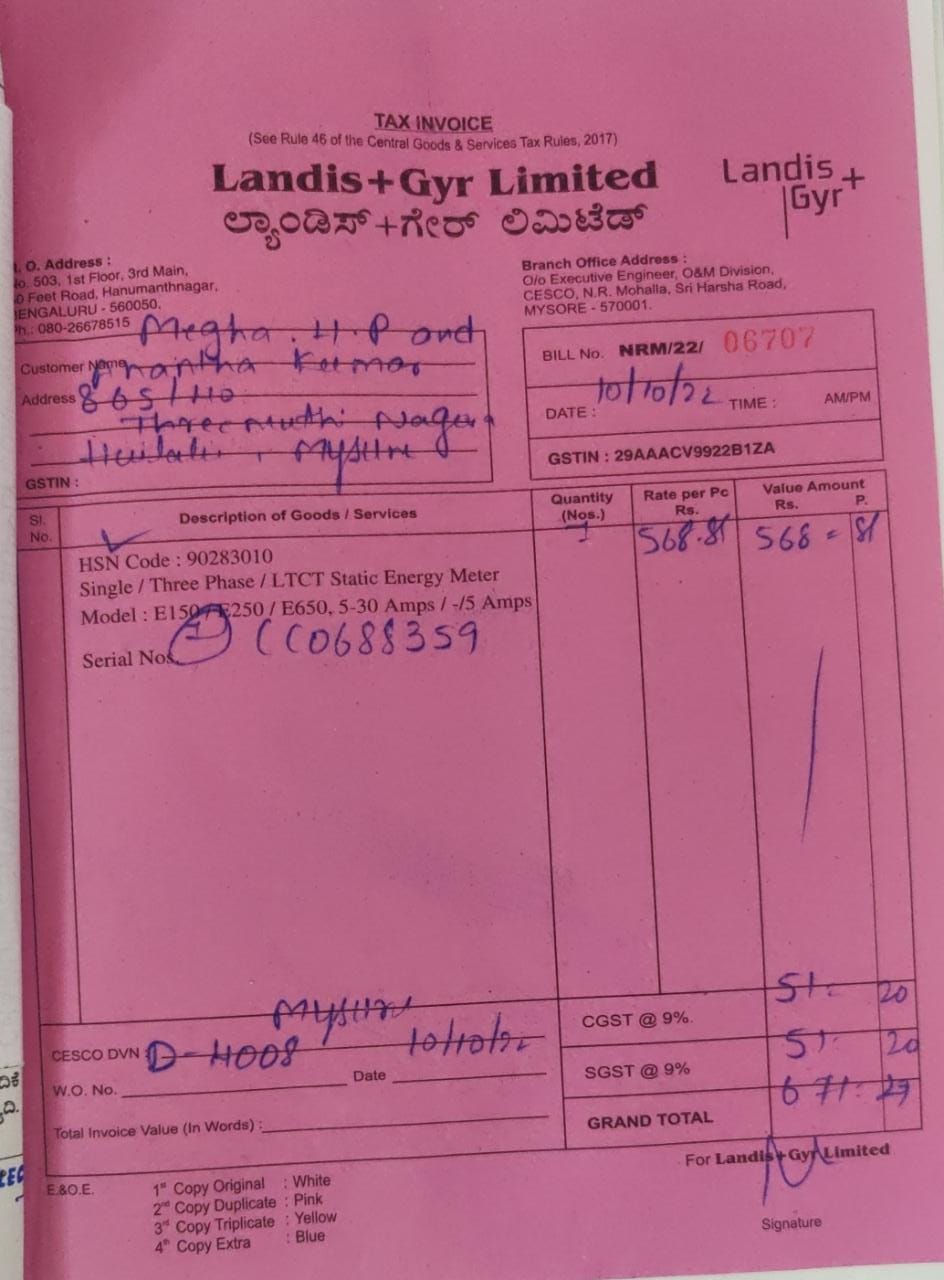 TAX INVOICE
(See Rule 46 of the Central Goods & Services Tax Rules, 2017)
Landis+Gyr Limited
ಲ್ಯಾಂಡಿಸ್+ಗೇರ್ ಲಿಮಿಟೆಡ್
Landis+
Gyr
. O. Address :
No. 503, 1st Floor, 3rd Main,
0 Feet Road, Hanumanthnagar,
ENGALURU - 560050.
Ph.: 080-26678515
Branch Office Address :
O/o Executive Engineer, O&M Division,
CESCO, N.R. Mohalla, Sri Harsha Road,
MYSORE - 570001.
Customer Name Megha. H.P and
Anantha Kumar
Address 865/HO
Nagar
Mysuru
GSTIN :
BILL No. NRM/22/ 06707
DATE : 10/10/22 TIME : AM/PM
GSTIN : 29AAACV9922B1ZA
Sl. No. Description of Goods / Services Quantity (Nos.) Rate per Pc Rs. Value Amount Rs. P.
1 568.81 568 = 81
HSN Code : 90283010
Single / Three Phase / LTCT Static Energy Meter
Model : E150 / E250 / E650, 5-30 Amps / -/5 Amps
Serial Nos. 1 CC0688359
Mysuru
CGST @ 9% 51 20
CESCO DVN D-4008 10/10/22
SGST @ 9% 51 20
W.O. No. Date
GRAND TOTAL 671 27
Total Invoice Value (In Words) :
For Landis+Gyr Limited
E.&O.E.
1st Copy Original : White
2nd Copy Duplicate : Pink
3rd Copy Triplicate : Yellow
4th Copy Extra : Blue
Signature